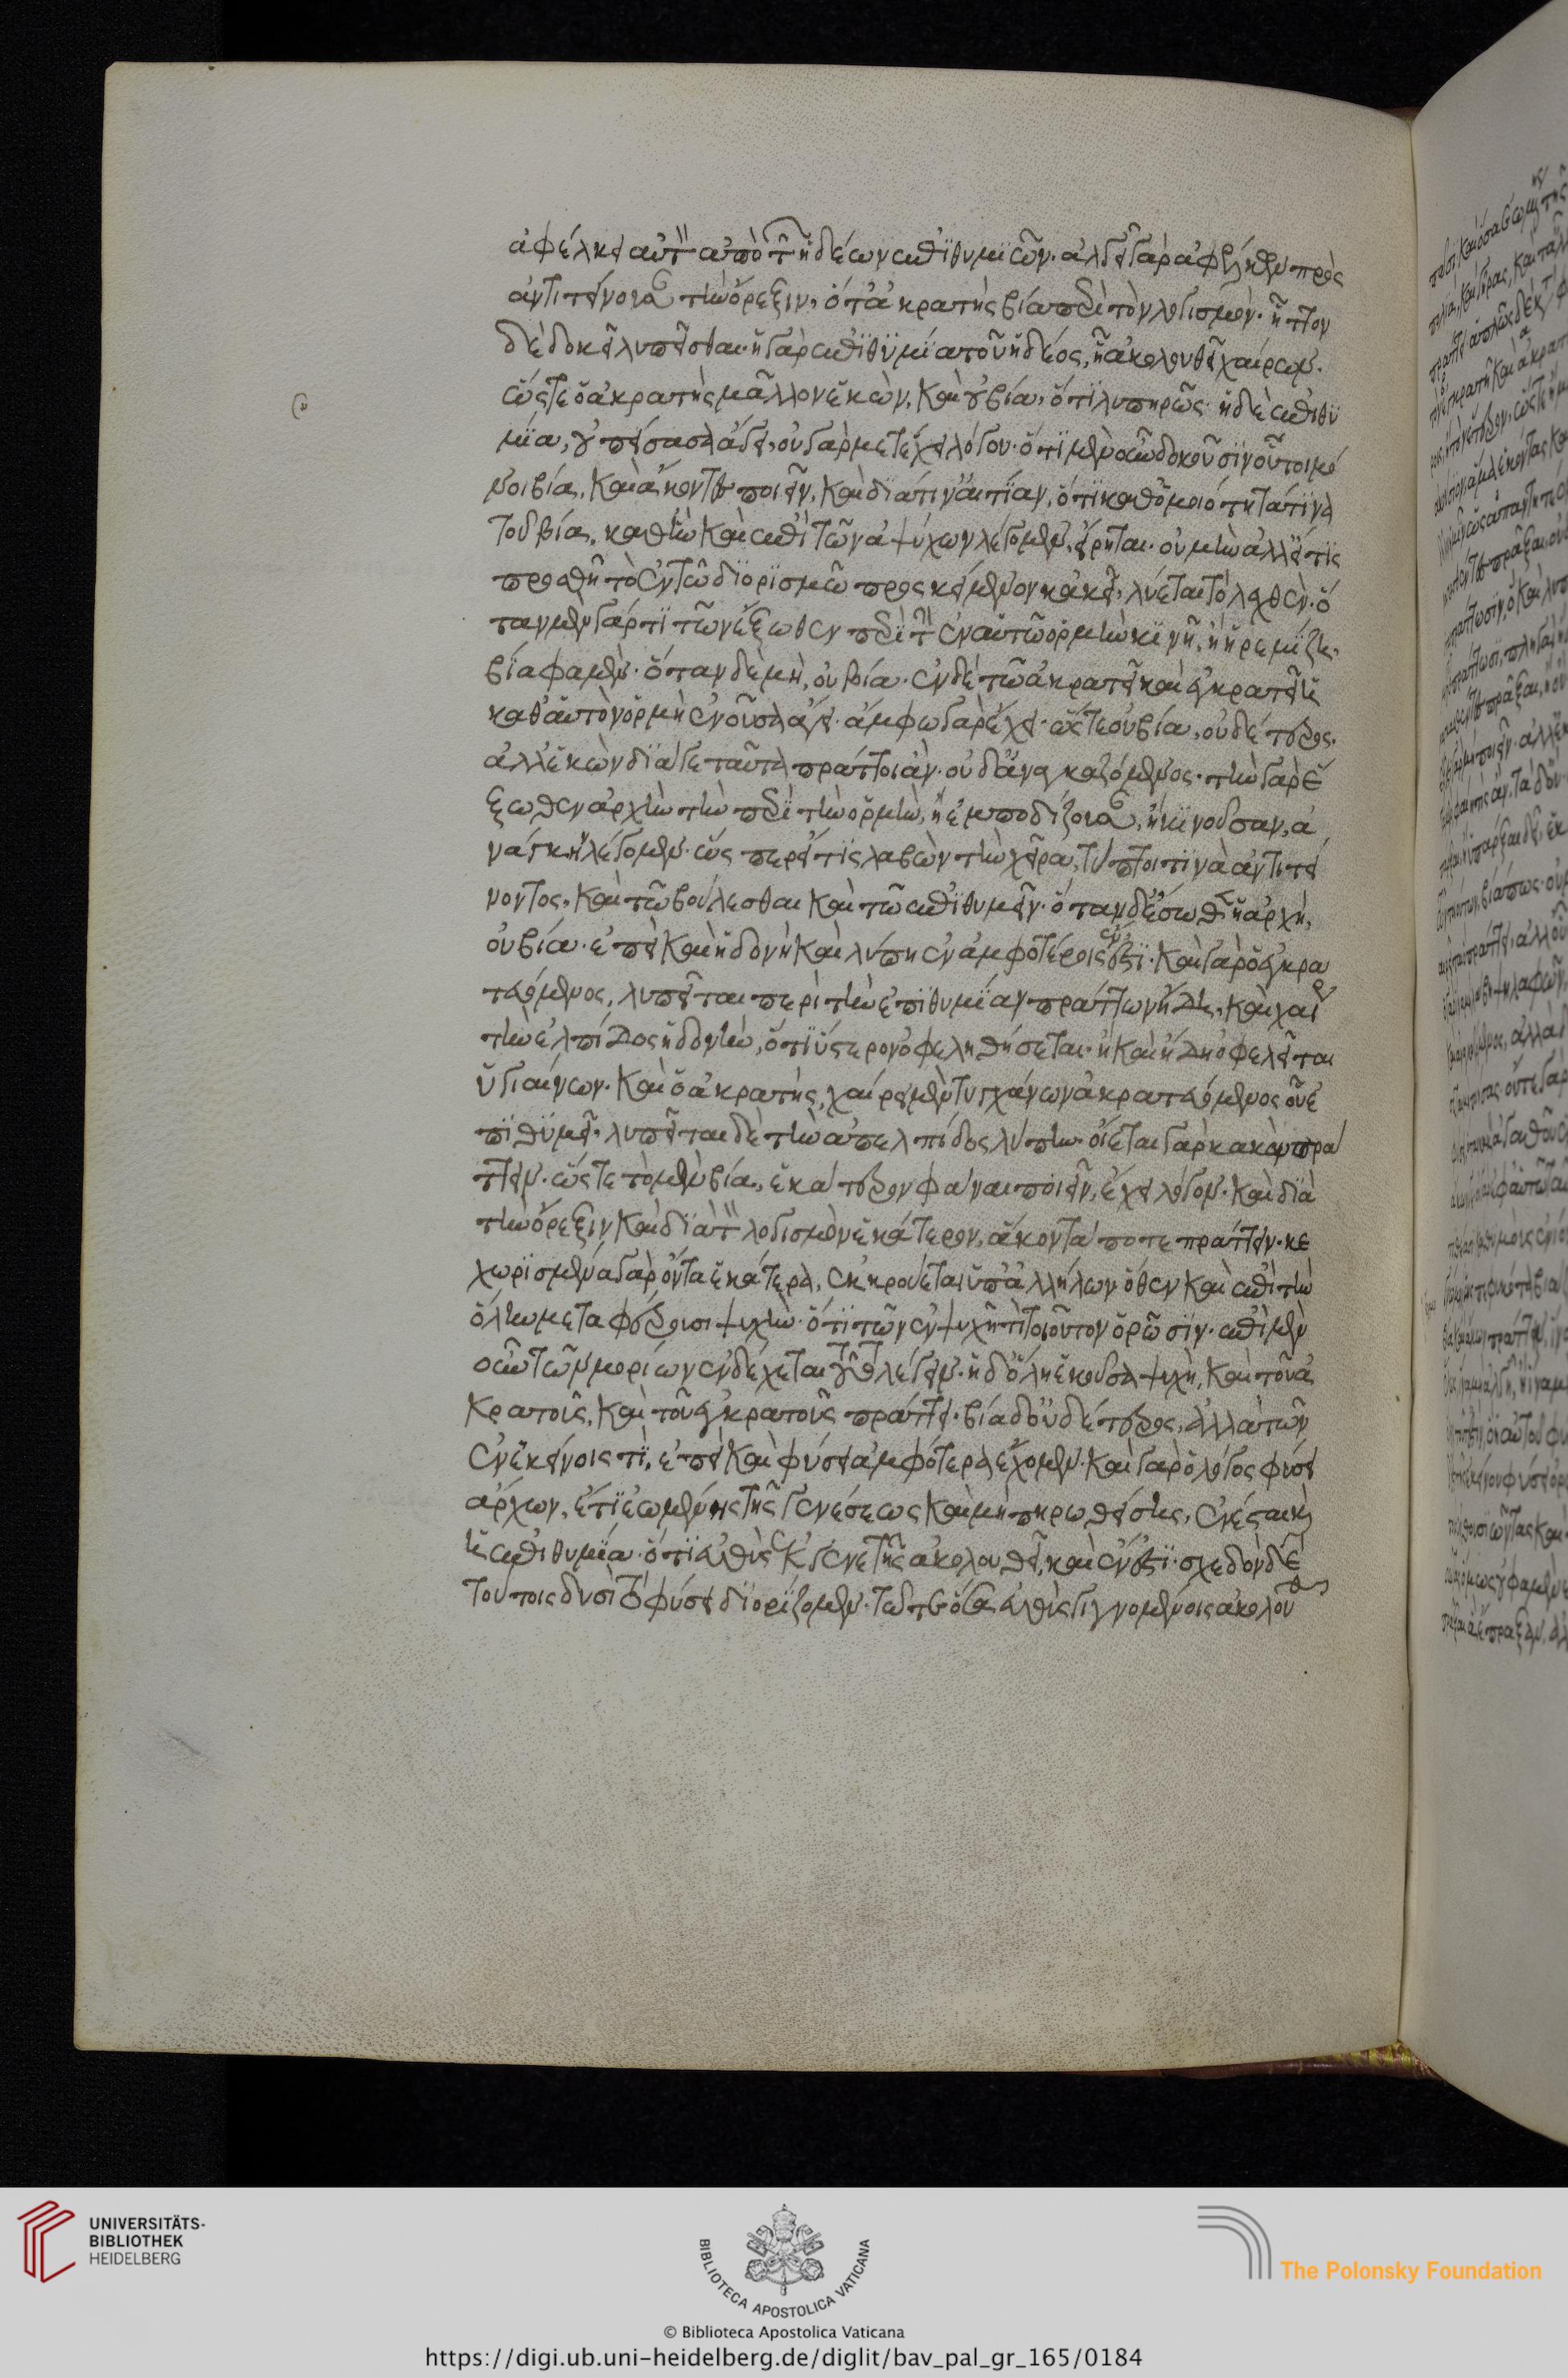 ἀφέλκει αὐτὸν ἀπὸ τῶν ἡδέων ἐπϊθυμϊῶν· ἀλγεῖ γὰρ ἀφέλκων πρὸς
ἀντιτείνουσαν τὴν ὄρεξιν, ὅτ' ἀκρατὴς βία παρὰ τὸν λογισμόν· ἧττον
δὲ δοκεῖ λυπεῖσθαι· ἡ γὰρ ἐπϊθϋμία τοῦ ἡδέος, ἧ ἀκολουθεῖ χαίρων·
ὥστε ὁ ἀκρατὴς μᾶλλον ἑκὼν, καὶ οὐ βία, ὅτι λυπηρῶς· ἡ δὲ ἐπιθϋ
μϊα, οὐ πείσασα ἄγει, οὐ γὰρ μετέχει λόγου· ὅτι μὲν οὖν δοκοῦσϊν οὗτοι μό
νοι βία, καὶ ἄκοντες ποιεῖν, καὶ διατίν' αἰτίαν, ὅτι καθ' ὁμοιότητά τινα
τοῦ βία, καθ' ἣν καὶ ἐπὶ τῶν ἀψύχων λέγομεν, εἴρηται· οὐ μὴν ἀλλ' εἴ τις
προσθῆ τὸ ἐν τῶ διορισμῶ προσκείμενον κἀκεῖ, λύεται τὸ λεχθέν· ὅ
ταν μὲν γάρ τι τῶν ἔξωθεν παρὰ τὴν ἐν αὐτῶ ὁρμὴν κινῆ, ἢ ἠρεμίζη,
βία φαμὲν· ὅταν δὲ μὴ, οὐ βία· ἐν δὲ τῶ ἀκρατεῖ καὶ ἐγκρατεῖ ἡ
καθ' αὑτὸν ὁρμὴ ἐνοῦσα ἄγει· ἄμφω γὰρ ἔχει· ὥστε οὐ βία, οὐδέτερος,
ἀλλ' ἑκὼν διά γε ταῦτα πράττοι ἄν· οὐδ' ἀναγκαζόμενος· τὴν γὰρ ἔ
ξωθεν ἀρχὴν τὴν παρὰ τὴν ὁρμὴν, ἢ ἐμποδίζουσαν, ἢ κινοῦσαν, ἀ
νάγκην λέγομεν· ὥς περ εἴ τις λαβὼν τὴν χεῖρα, τύπτοι τινὰ ἀντιτεί
νοντος, καὶ τῶ βούλεσθαι καὶ τῶ ἐπιθυμεῖν· ὅταν δ' ἔσωθεν ἡ ἀρχὴ,
οὐ βία· ἐπεὶ καὶ ἡδονὴ καὶ λύπη ἐν ἀμφοτέροις ἔνεστι· καὶ γὰρ ὁ ἐγκρα
τευόμενος, λυπεῖται περὶ τὴν ἐπιθυμίαν πράττων ἤδη, καὶ χαίρει
τὴν ἐλπίδος ἡδονὴν, ὅτι ὕστερον ὀφεληθήσεται· ἢ καὶ ἤδη ὀφελεῖται
ὑγιαίνων· καὶ ὁ ἀκρατὴς, χαίρει μὲν τυγχάνων ἀκρατευόμενος οὗ ἐ
πιθυμεῖ· λυπεῖται δὲ τὴν ἀπ' ἐλπίδος λύπην· οἴεται γὰρ κακὸν πρά
ττειν· ὥστε τὸ μὲν βία, ἑκάτερον φάναι ποιεῖν, ἔχει λόγον· καὶ διὰ
τὴν ὄρεξιν καὶ διὰ τὸν λογισμὸν ἑκάτερον, ἄκοντά ποτε πράττειν· κε
χωρισμένα γὰρ ὄντα ἑκάτερα, ἐκκρούεται ὑπ' ἀλλήλων ὅθεν καὶ ἐπὶ τὴν
ὅλην μεταφέρουσι ψυχὴν· ὅτι τῶν ἐν ψυχῆ τι τοιοῦτον ὁρῶσϊν· ἐπὶ μὲν
οὖν τῶν μορίων ἐνδέχεται τοῦτο λέγειν· ἡ δ' ὅλη ἑκοῦσα ψυχὴ, καὶ τοῦ ἀ
κρατοῦς, καὶ τοῦ ἐγκρατοῦς πράττει· βία δ' οὐδέτερος, ἀλλὰ τῶν
ἐν ἐκείνοις τι, ἐπεὶ καὶ φύσει ἀμφότερα ἔχομεν· καὶ γὰρ ὁ λόγος φύσει
ἄρχων, ἔτι ἐωμένης τῆς γενέσεως καὶ μὴ πηρωθείσης, ἐνέσται καὶ
ἡ ἐπιθυμία· ὅτι εὐθὺς ἐκ γενετῆς ἀκολουθεῖ, καὶ ἔνεστι· σχεδὸν δὲ
τούτοις δυσὶ τὸ φύσει διορίζομεν· τῶ τε ὅσα εὐθὺς γιγνομένοις ἀκολουθεῖ
UNIVERSITÄTS-
BIBLIOTHEK
HEIDELBERG
BIBLIOTECA APOSTOLICA VATICANA
© Biblioteca Apostolica Vaticana
The Polonsky Foundation
https://digi.ub.uni-heidelberg.de/diglit/bav_pal_gr_165/0184